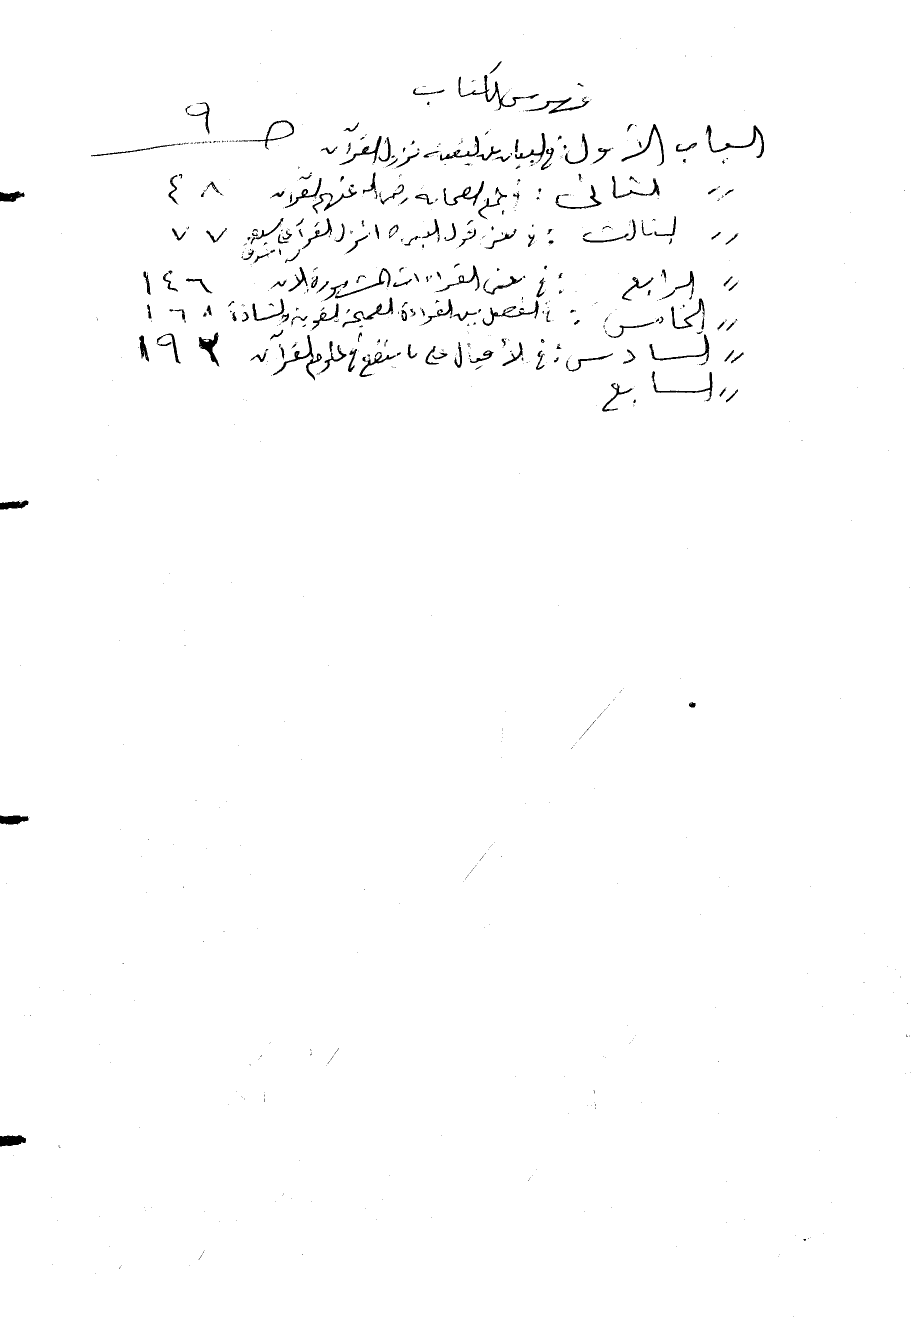 فهرس الكتاب
الباب الأول : في البيان عن كيفية نزول القرآن ص ٩
〃 الثاني : في جمع الصحابة رضي الله عنهم القرآن ٤٨
〃 الثالث : في معنى قول النبي ﷺ انزل القرآن على سبعة احرف ٧٧
〃 الرابع : في معنى القراءات المشهورة الآن ١٤٦
〃 الخامس : في الفصل بين القراءة الصحيحة القوية والشاذة ١٦٨
〃 السادس : في الاقبال على ما ينفع في علوم القرآن ١٩٢
〃 السابع